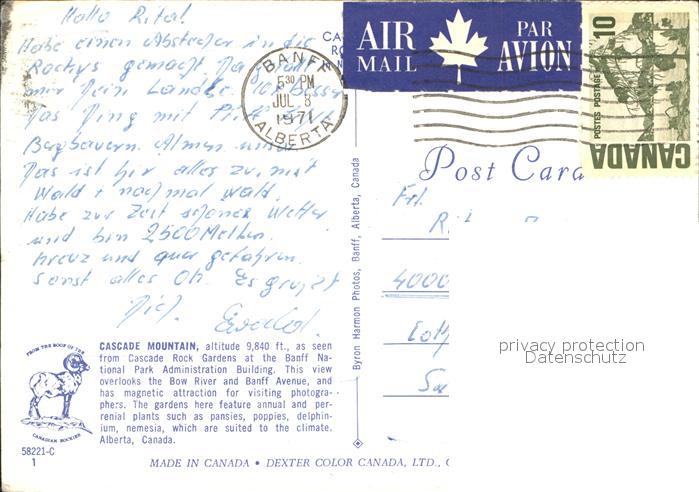 Hallo Rita!
Habe einen Abstecher in die
Rockys gemacht. Da
mir Dein Ländle besser.
Das Ding mit
Bergbauern, Almen und
Das ist hir alles zu, mit
Wald + nochmal Wald.
Habe zur Zeit schönes Wetter
und bin 2500 Meilen
kreuz und quer gefahren.
Sonst alles Ok. Es grüßt
Dich
AIR MAIL
PAR AVION
10
POSTES POSTAGE
CANADA
BANFF
5 30 PM
JUL 8
1971
ALBERTA
Post Card
Frl.
R
4000
CASCADE MOUNTAIN, altitude 9,840 ft., as seen
from Cascade Rock Gardens at the Banff Na-
tional Park Administration Building. This view
overlooks the Bow River and Banff Avenue, and
has magnetic attraction for visiting photogra-
phers. The gardens here feature annual and per-
renial plants such as pansies, poppies, delphin-
ium, nemesia, which are suited to the climate.
Alberta, Canada.
FROM THE ROOF OF THE
CANADIAN ROCKIES
58221-C
1
Byron Harmon Photos, Banff, Alberta, Canada
MADE IN CANADA • DEXTER COLOR CANADA, LTD.,
privacy protection
Datenschutz